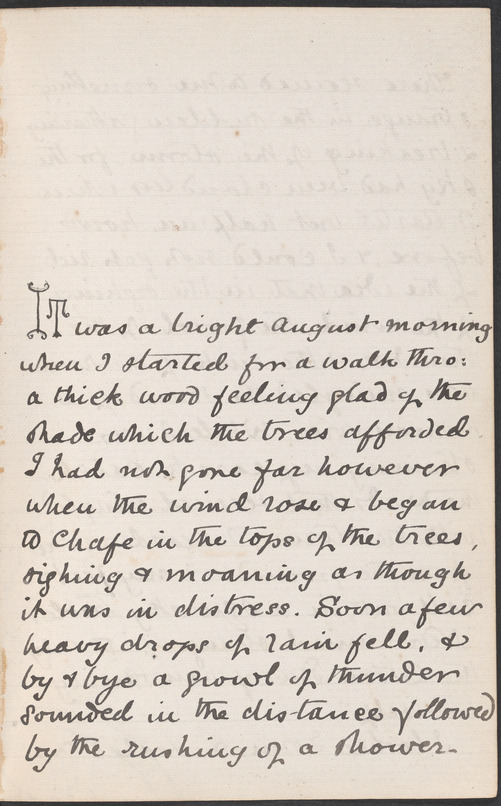 IT was a bright August morning
when I started for a walk thro:
a thick wood feeling glad of the
shade which the trees afforded
I had not gone far however
when the wind rose & began
to chafe in the tops of the trees,
sighing & moaning as though
it was in distress. Soon a few
heavy drops of rain fell, &
by & bye a growl of thunder
sounded in the distance followed
by the rushing of a shower.